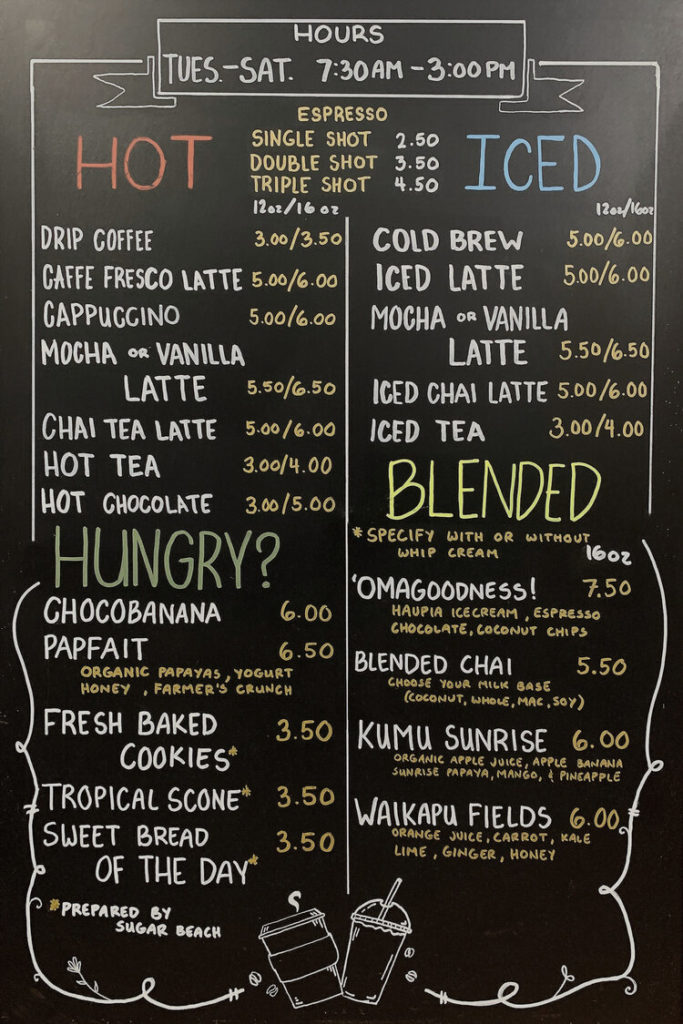 HOURS
TUES.-SAT. 7:30AM-3:00PM
ESPRESSO
SINGLE SHOT 2.50
DOUBLE SHOT 3.50
TRIPLE SHOT 4.50
HOT
12oz/16oz
DRIP COFFEE 3.00/3.50
CAFFE FRESCO LATTE 5.00/6.00
CAPPUCCINO 5.00/6.00
MOCHA OR VANILLA
LATTE 5.50/6.50
CHAI TEA LATTE 5.00/6.00
HOT TEA 3.00/4.00
HOT CHOCOLATE 3.00/5.00
HUNGRY?
CHOCOBANANA 6.00
PAPFAIT 6.50
ORGANIC PAPAYAS, YOGURT
HONEY, FARMER'S CRUNCH
FRESH BAKED 3.50
COOKIES*
TROPICAL SCONE* 3.50
SWEET BREAD 3.50
OF THE DAY*
*PREPARED BY
SUGAR BEACH
ICED
12oz/16oz
COLD BREW 5.00/6.00
ICED LATTE 5.00/6.00
MOCHA OR VANILLA
LATTE 5.50/6.50
ICED CHAI LATTE 5.00/6.00
ICED TEA 3.00/4.00
BLENDED
*SPECIFY WITH OR WITHOUT
WHIP CREAM
16oz
'OMAGOODNESS! 7.50
HAUPIA ICECREAM, ESPRESSO
CHOCOLATE, COCONUT CHIPS
BLENDED CHAI 5.50
CHOOSE YOUR MILK BASE
(COCONUT, WHOLE, MAC, SOY)
KUMU SUNRISE 6.00
ORGANIC APPLE JUICE, APPLE BANANA
SUNRISE PAPAYA, MANGO, & PINEAPPLE
WAIKAPU FIELDS 6.00
ORANGE JUICE, CARROT, KALE
LIME, GINGER, HONEY